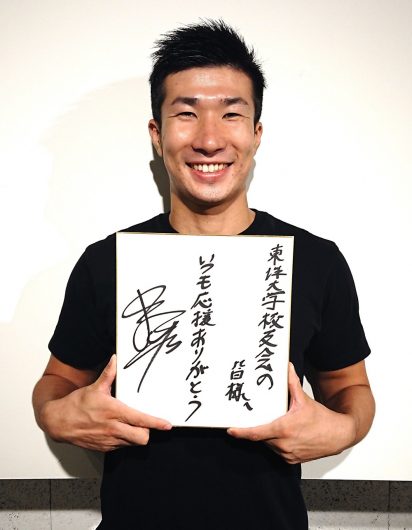 東洋大学校友会の
皆様へ
いつも応援ありがとう